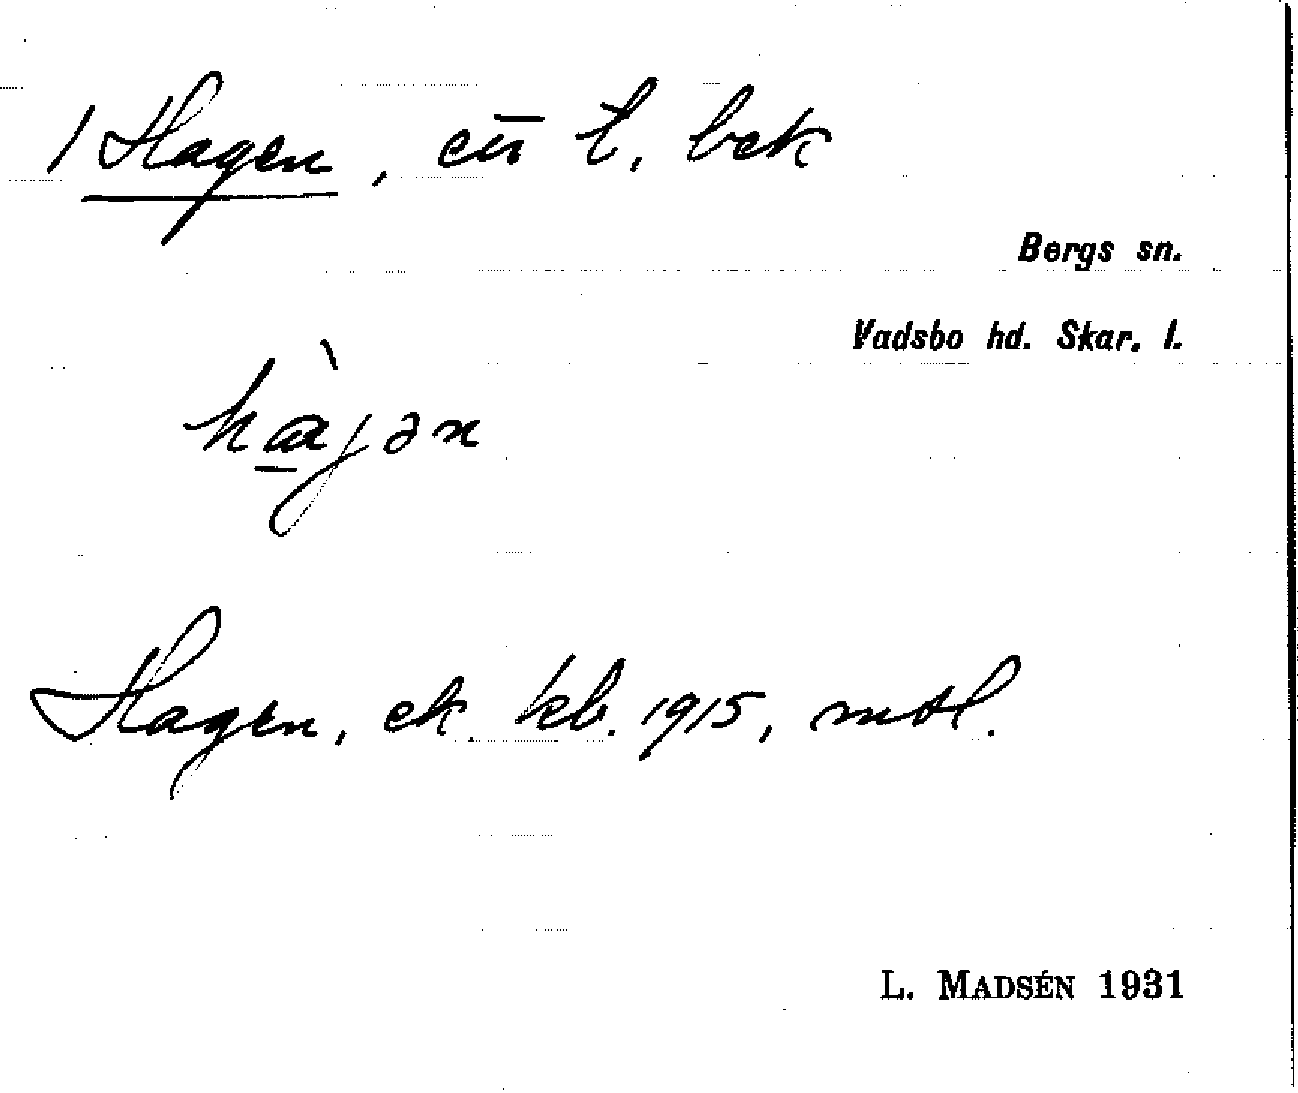 1 Hagen, en t. bek
Bergs sn.
Vadsbo hd. Skar. l.
hàjən
Hagen, ek. kb. 1915, mtl.
L. MADSÉN 1931